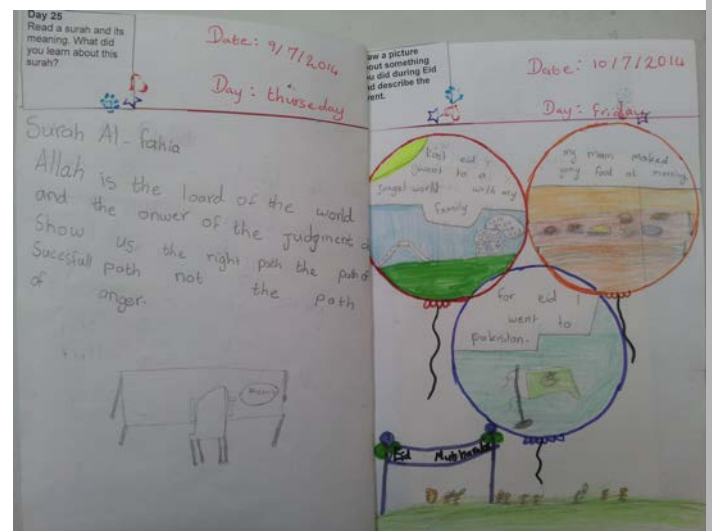 Day 25
Read a surah and its
meaning. What did
you learn about this
surah?
Date: 9/7/2014
Day: thurseday
Surah Al-fahia
Allah is the loard of the world
and the onwer of the judgment
Show us the right path the path of
Sucesfull path not the path
of anger.
aw a picture
out something
u did during Eid
nd describe the
ent.
Date: 10/7/2014
Day: friday
eid I
went to a
world with my
family
my mom maked
ymy food at morning
for eid I
went to
pakistan.
Eid Mubarak